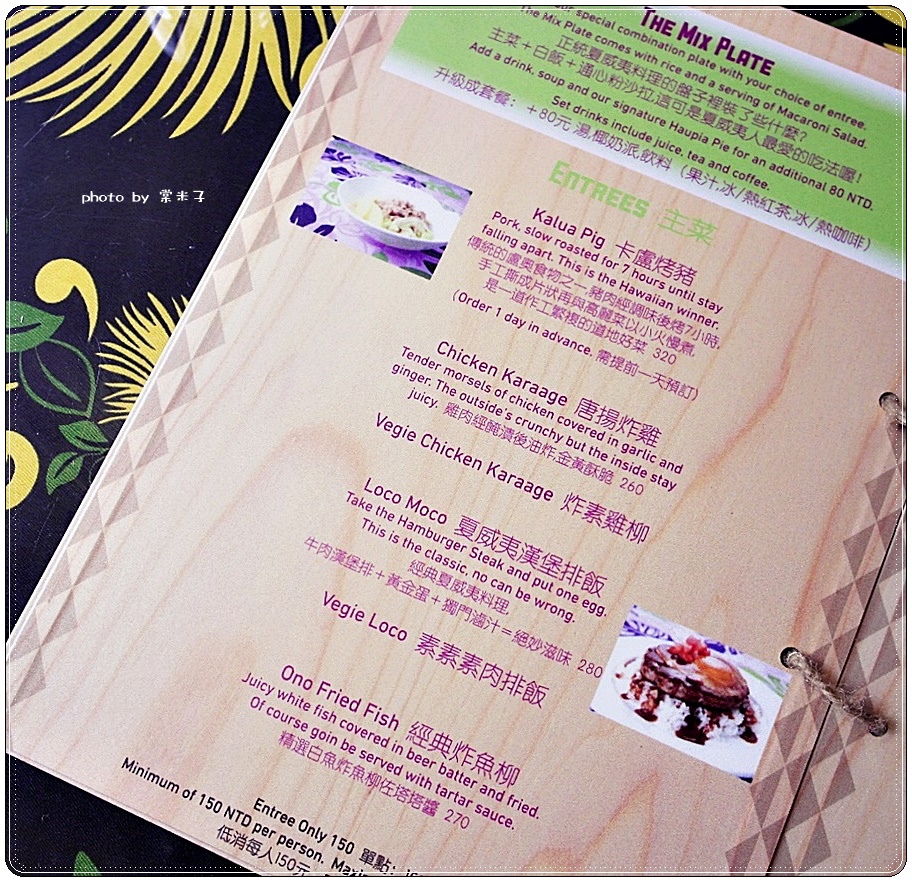 THE MIX PLATE
our special combination plate with your choice of entree.
The Mix Plate comes with rice and a serving of Macaroni Salad.
正統夏威夷料理的盤子裡裝了些什麼?
主菜+白飯+通心粉沙拉,這可是夏威夷人最愛的吃法喔!
Add a drink, soup and our signature Haupia Pie for an additional 80 NTD.
Set drinks include juice, tea and coffee.
升級成套餐: +80元 湯,椰奶派,飲料 (果汁,冰/熱紅茶,冰/熱咖啡)
ENTREES 主菜
Kalua Pig 卡盧烤豬
Pork, slow roasted for 7 hours until stay
falling apart. This is the Hawaiian winner.
傳統的盧奧食物之一,豬肉經調味後烤7小時,
手工撕成片狀再與高麗菜以小火慢煮,
是一道作工繁複的道地好菜 320
(Order 1 day in advance. 需提前一天預訂)
Chicken Karaage 唐揚炸雞
Tender morsels of chicken covered in garlic and
ginger. The outside's crunchy but the inside stay
juicy. 雞肉經醃漬後油炸,金黃酥脆 260
Vegie Chicken Karaage 炸素雞柳
Loco Moco 夏威夷漢堡排飯
Take the Hamburger Steak and put one egg.
This is the classic, no can be wrong.
經典夏威夷料理,
牛肉漢堡排+黃金蛋+獨門滷汁=絕妙滋味 280
Vegie Loco 素素素肉排飯
Ono Fried Fish 經典炸魚柳
Juicy white fish covered in beer batter and fried.
Of course goin be served with tartar sauce.
精選白魚炸魚柳佐塔塔醬 270
Entree Only 150 單點:
Minimum of 150 NTD per person.
低消每人150元
photo by 棠米子